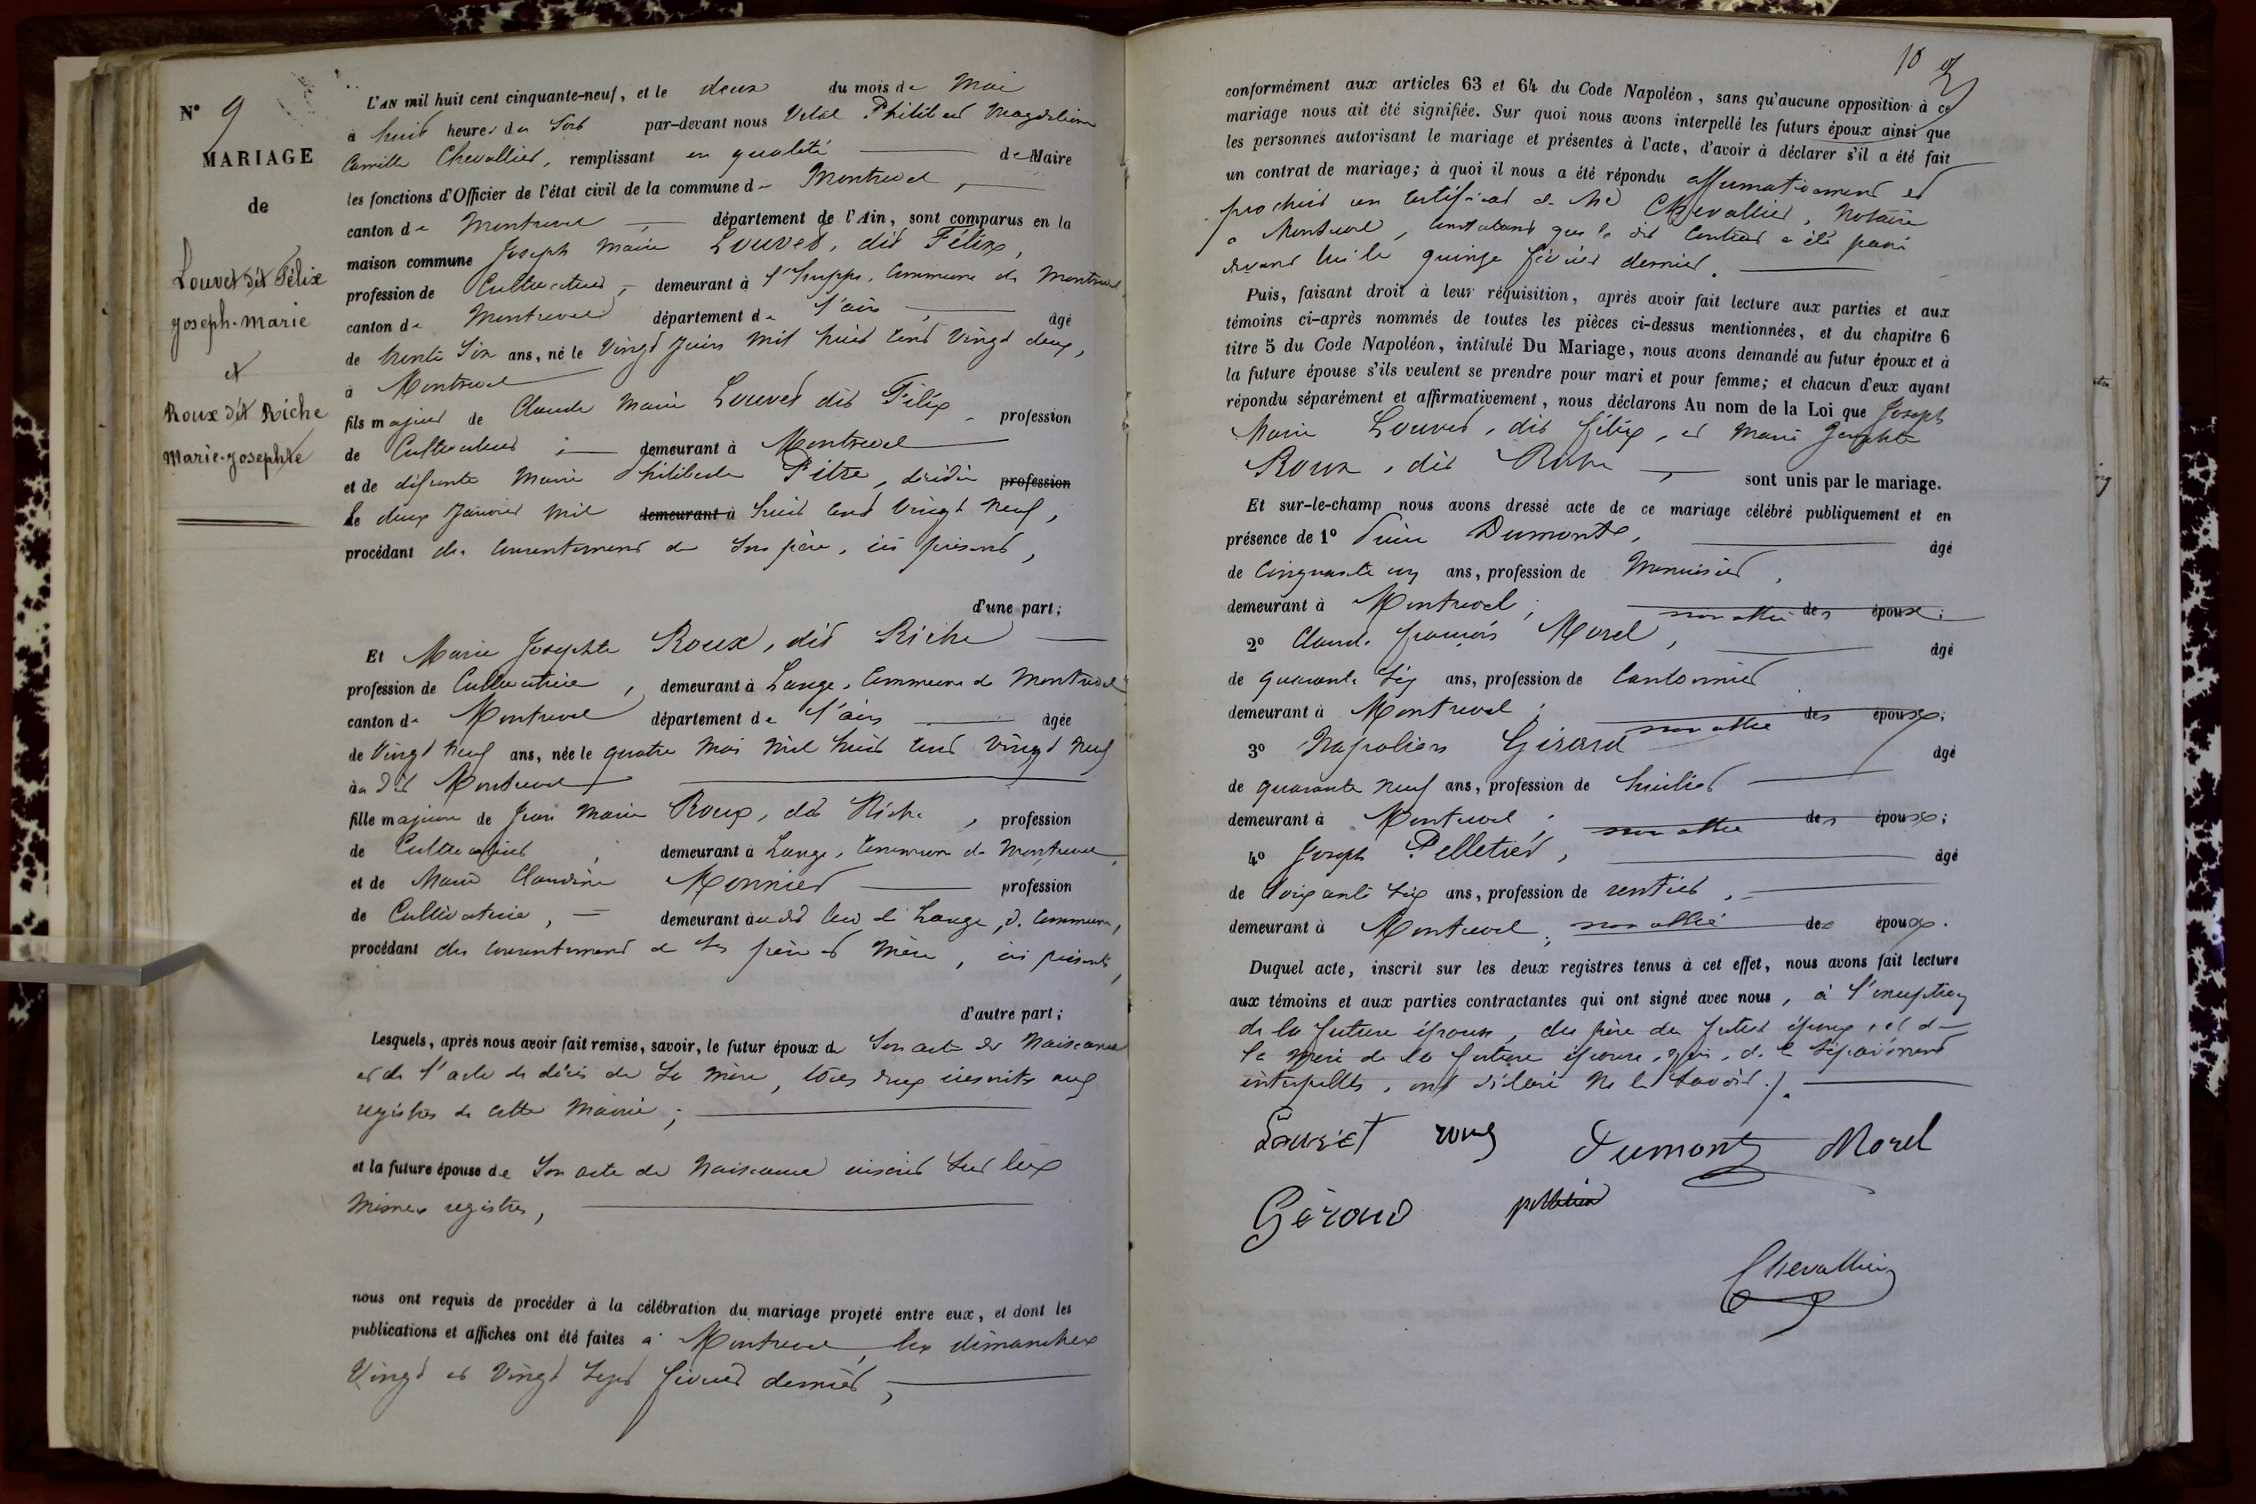 N° 9
MARIAGE
de
Louvet dit Félix
joseph-marie
et
Roux dit Riche
Marie-josephte
L'AN mil huit cent cinquante-neuf, et le deux du mois de Mai
à huit heures du soir par-devant nous Vital Philibert Magdeleine
Camille Chevallier, remplissant en qualité de Maire
les fonctions d'Officier de l'état civil de la commune de Montrevel,
canton de Montrevel, département de l'Ain, sont comparus en la
maison commune Joseph Marie Louvet, dit Félix,
profession de Cultivateur, demeurant à Commune de Montrevel
canton de Montrevel département de l'ain, âgé
de trente six ans, né le vingt juin mil huit cent vingt deux,
à Montrevel
fils majeur de Claude Marie Louvet dit Félix, profession
de Cultivateur, demeurant à Montrevel
et de défunte Marie Philiberte Pitre, décédée profession
le deux Janvier mil demeurant à huit cent vingt neuf,
procédant du consentement de son père, ici présent,
d'une part;
Et Marie Josephte Roux, dit Riche
profession de Cultivatrice, demeurant à Lange, Commune de Montrevel
canton de Montrevel département de l'ain âgée
de vingt neuf ans, née le quatre Mai mil huit cent vingt neuf
au dit Montrevel
fille majeure de Jean Marie Roux, dit Riche, profession
de Cultivateur, demeurant à Lange, Commune de Montrevel,
et de Marie Claudine Monnier profession
de Cultivatrice, demeurant au dit lieu de Lange, d. Commune,
procédant du consentement de ses père et mère, ici présents,
d'autre part;
Lesquels, après nous avoir fait remise, savoir, le futur époux de son acte de Naissance
et de l'acte de décès de sa mère, tous deux inscrits aux
registres de cette Mairie;
et la future épouse de son acte de Naissance inscrit sur les
mêmes registres,
nous ont requis de procéder à la célébration du mariage projeté entre eux, et dont les
publications et affiches ont été faites à Montrevel, les dimanches
Vingt et Vingt sept février dernier,
10
conformément aux articles 63 et 64 du Code Napoléon, sans qu'aucune opposition à ce
mariage nous ait été signifiée. Sur quoi nous avons interpellé les futurs époux ainsi que
les personnes autorisant le mariage et présentes à l'acte, d'avoir à déclarer s'il a été fait
un contrat de mariage; à quoi il nous a été répondu affirmativement et
produit un certificat de Me Chevallier, Notaire
à Montrevel, constatant que le dit Contrat a été passé
devant lui le quinze février dernier.
Puis, faisant droit à leur réquisition, après avoir fait lecture aux parties et aux
témoins ci-après nommés de toutes les pièces ci-dessus mentionnées, et du chapitre 6
titre 5 du Code Napoléon, intitulé Du Mariage, nous avons demandé au futur époux et à
la future épouse s'ils veulent se prendre pour mari et pour femme; et chacun d'eux ayant
répondu séparément et affirmativement, nous déclarons Au nom de la Loi que Joseph
Marie Louvet, dit félix, et Marie Josephte
Roux, dit Riche, sont unis par le mariage.
Et sur-le-champ nous avons dressé acte de ce mariage célébré publiquement et en
présence de 1° Dumont, âgé
de Cinquante un ans, profession de Menuisier,
demeurant à Montrevel; non allié des époux;
2° Claude françois Morel, âgé
de quarante six ans, profession de Cantonnier
demeurant à Montrevel; non allié des époux;
3° Napoléon Gérard âgé
de quarante neuf ans, profession de huilier
demeurant à Montrevel; non allié des époux;
4° Joseph Pelletier, âgé
de soixante six ans, profession de rentier,
demeurant à Montrevel; non allié des époux.
Duquel acte, inscrit sur les deux registres tenus à cet effet, nous avons fait lecture
aux témoins et aux parties contractantes qui ont signé avec nous, à l'exception
de la future épouse, du père du futur époux, et de
la mère de la future épouse, qui, de ce séparément
interpellés, ont déclaré ne le savoir.
Louvet roux Dumont Morel
Gérard pelletier
Chevallier